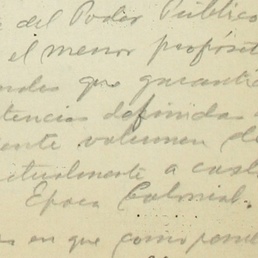 del Poder Público
el menor propósit
ndes que garanti
tencias definidas
ente volumen de
itualmente a cust
Epoca Colonial.
s en que componen